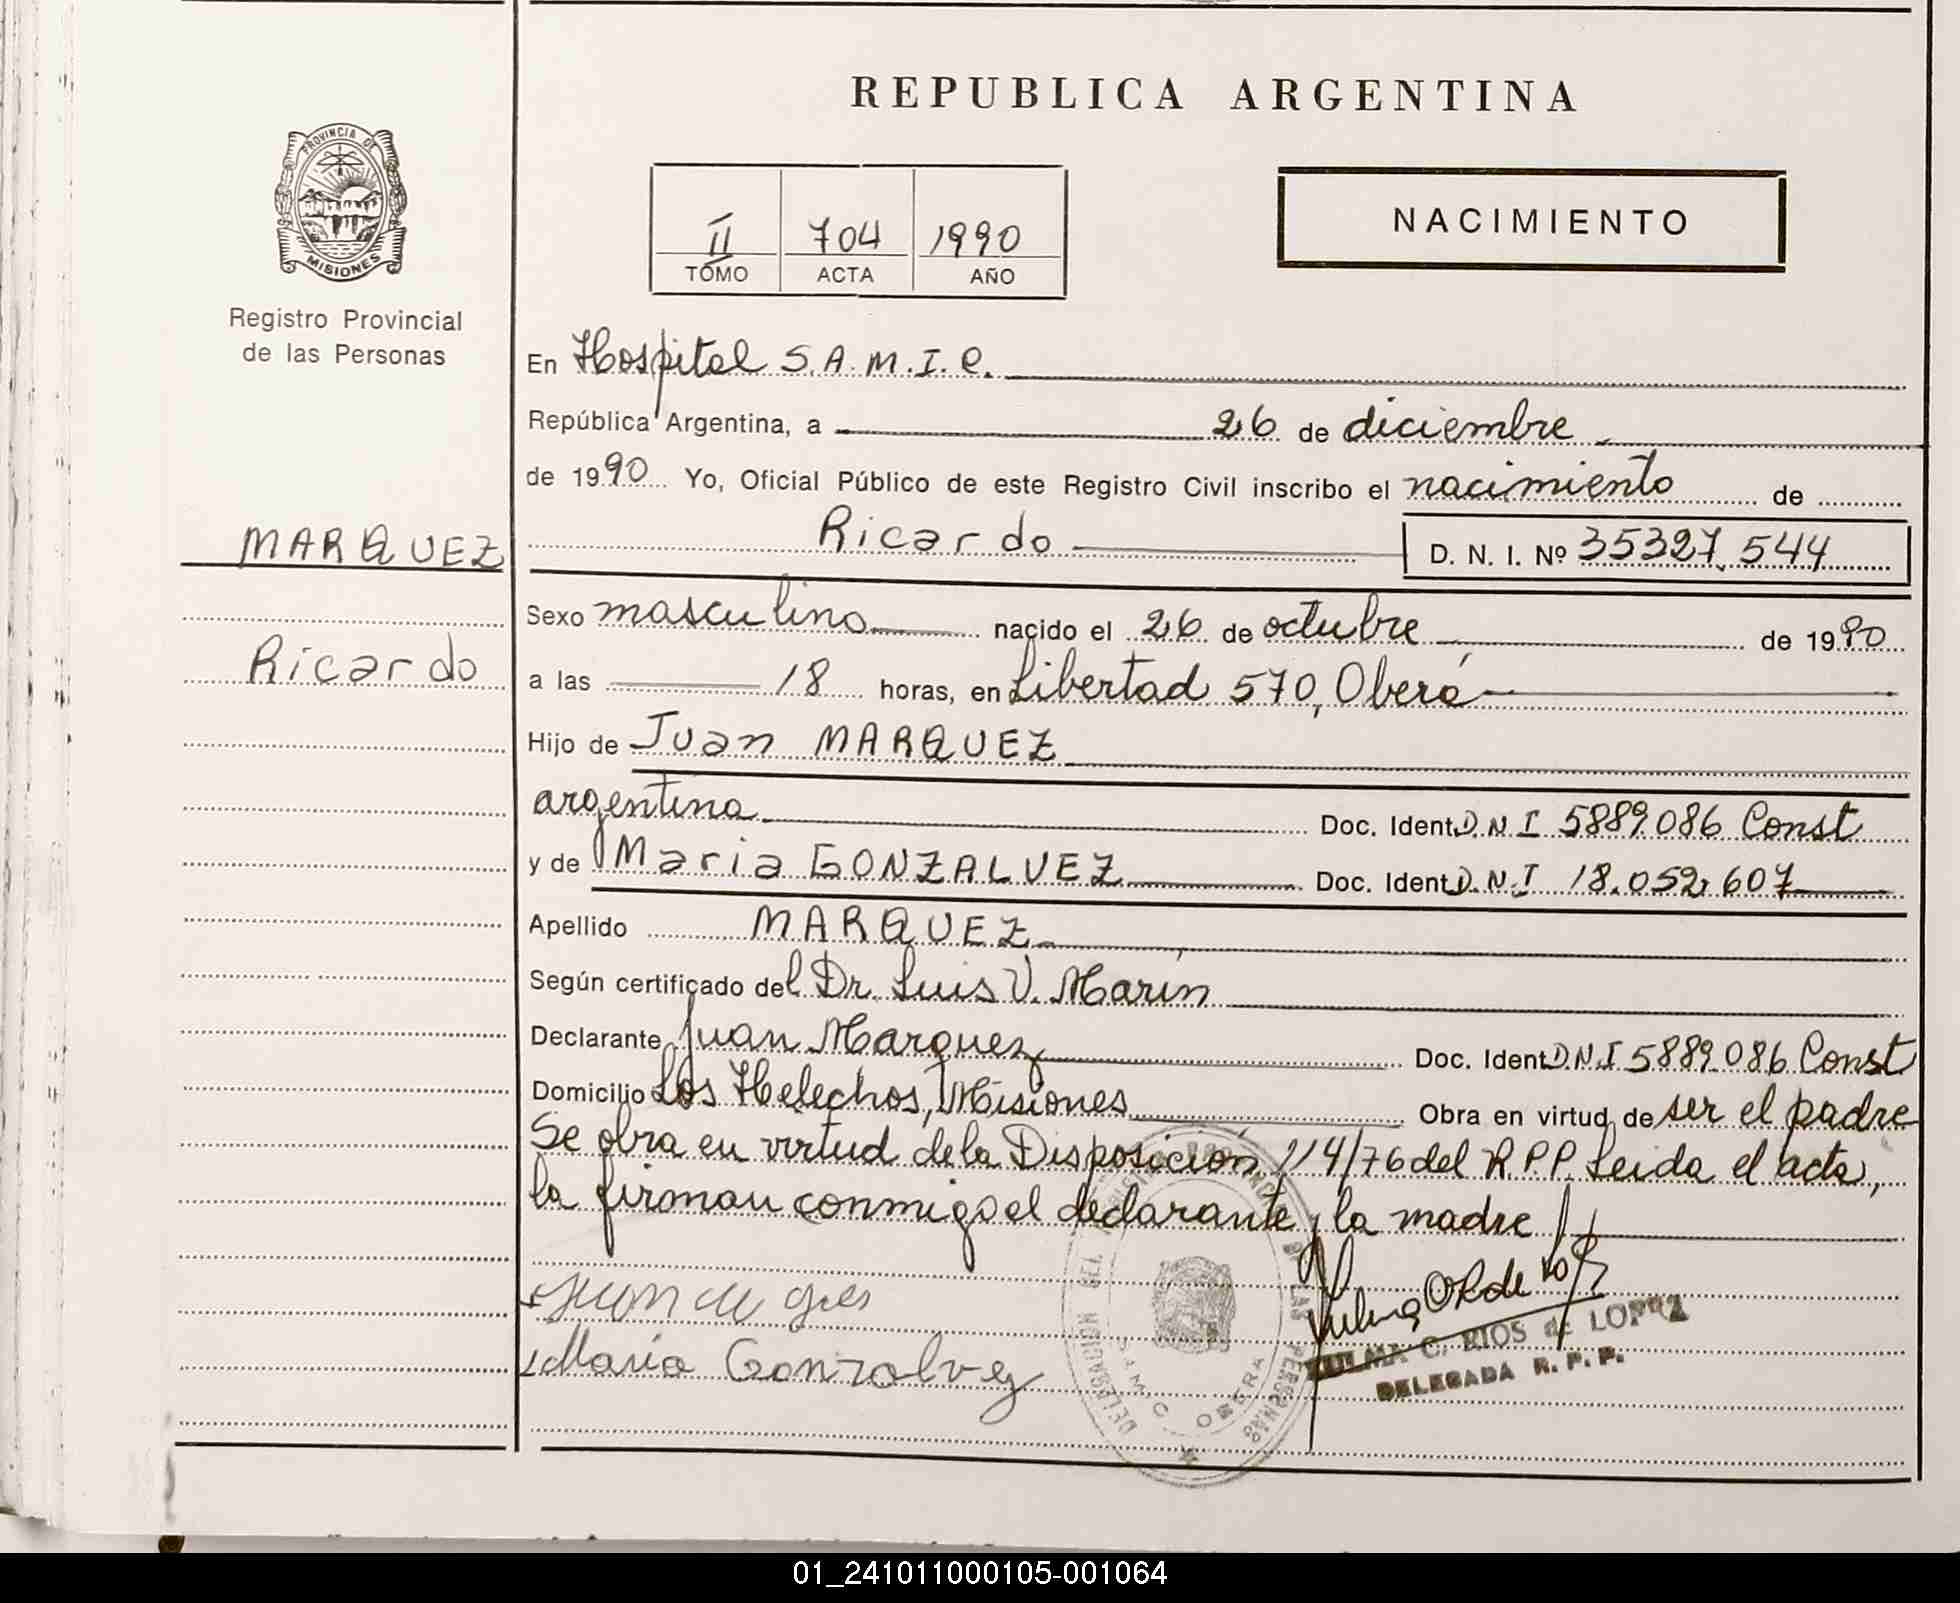 REPUBLICA ARGENTINA
PROVINCIA DE
MISIONES
Registro Provincial
de las Personas
II 704 1990
TOMO ACTA AÑO
NACIMIENTO
En Hospital S.A.M.I.C.
República Argentina, a 26 de diciembre
de 1990 Yo, Oficial Público de este Registro Civil inscribo el nacimiento de
MARQUEZ
Ricardo
Ricardo D. N. I. Nº 35327.544
Sexo masculino nacido el 26 de octubre de 1990
a las 18 horas, en Libertad 570, Oberá
Hijo de Juan MARQUEZ
argentina Doc. Ident. D.N.I 5889.086 Const
y de Maria GONZALVEZ Doc. Ident. D.N.I 18.052.607
Apellido MARQUEZ
Según certificado del Dr. Luis V. Marín
Declarante Juan Marquez Doc. Ident. D.N.I 5889.086 Const
Domicilio Los Helechos, Misiones Obra en virtud de ser el padre
Se obra en virtud de la Disposición 114/76 del R.P.P. Leida el acta,
la firman conmigo el declarante y la madre
Maria Gonzalvez
C. RIOS de LOPEZ
DELEGADA R. P. P.
DELEGACION DEL REGISTRO PROVINCIAL DE LAS PERSONAS
SAMIC OBERA
01_241011000105-001064